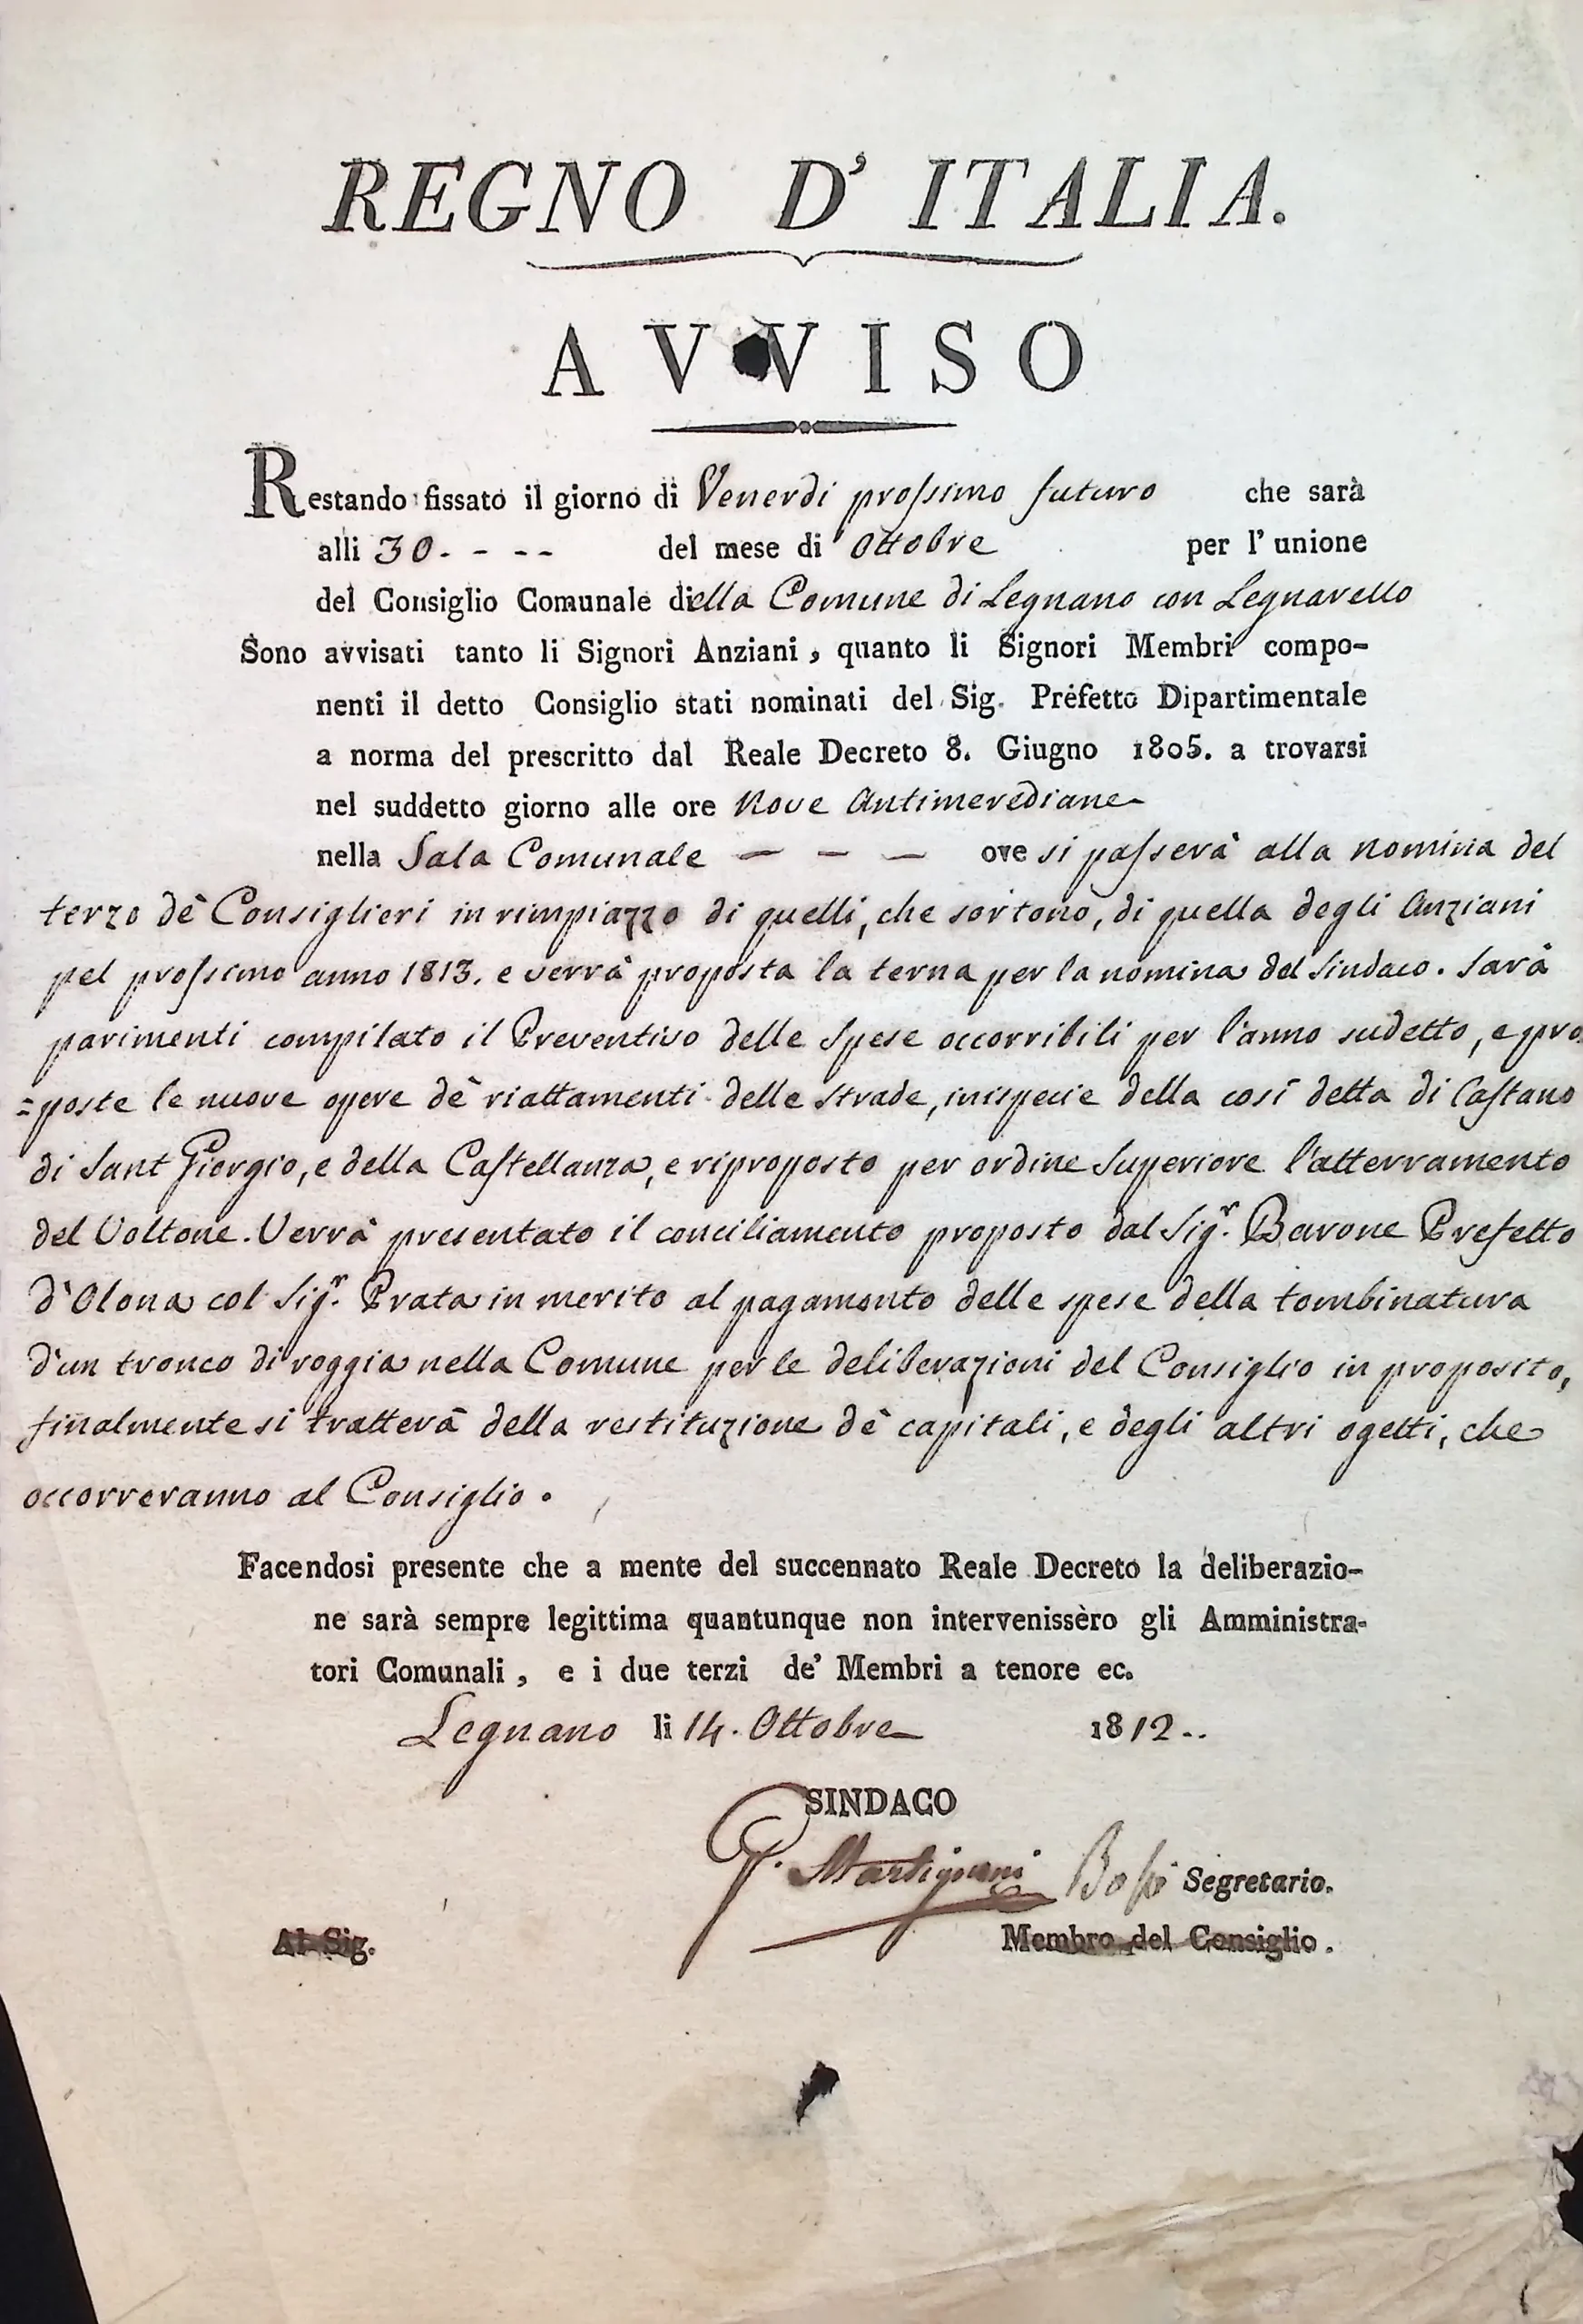 REGNO D' ITALIA.
AVVISO
Restando fissato il giorno di Venerdi prossimo futuro che sarà
alli 30. - - - del mese di Ottobre per l' unione
del Consiglio Comunale della Comune di Legnano con Legnarello
Sono avvisati tanto li Signori Anziani, quanto li Signori Membri compo-
nenti il detto Consiglio stati nominati del Sig. Prefetto Dipartimentale
a norma del prescritto dal Reale Decreto 8. Giugno 1805. a trovarsi
nel suddetto giorno alle ore Nove Antimerediane
nella Sala Comunale - - - ove si passerà alla nomina del
terzo dè Consiglieri in rimpiazzo di quelli, che sortono, di quella degli Anziani
pel prossimo anno 1813. e verrà proposta la terna per la nomina del Sindaco. Sarà
parimenti compilato il Preventivo delle Spese occorribili per l'anno sudetto, e pro
=poste le nuove opere dè riattamenti delle Strade, inispecie della così detta di Castano
di Sant Giorgio, e della Castellanza, e riproposto per ordine Superiore l'atterramento
del Voltone. Verrà presentato il conciliamento proposto dal Sigr. Barone Prefetto
d'Olona col Sigr. Prata in merito al pagamento delle spese della tombinatura
d'un tronco di roggia nella Comune per le deliberazioni del Consiglio in proposito,
finalmente si tratterà della restituzione dè capitali, e degli altri ogetti, che
occorreranno al Consiglio.
Facendosi presente che a mente del succennato Reale Decreto la deliberazio-
ne sarà sempre legittima quantunque non intervenissèro gli Amministra-
tori Comunali, e i due terzi de' Membri a tenore ec.
Legnano li 14. Ottobre 1812..
SINDACO
G. Martignoni Bossi Segretario.
Al Sig. Membro del Consiglio.